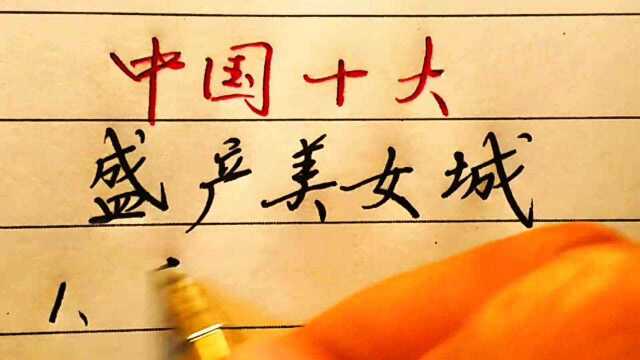 中国十大
盛产美女城
1、